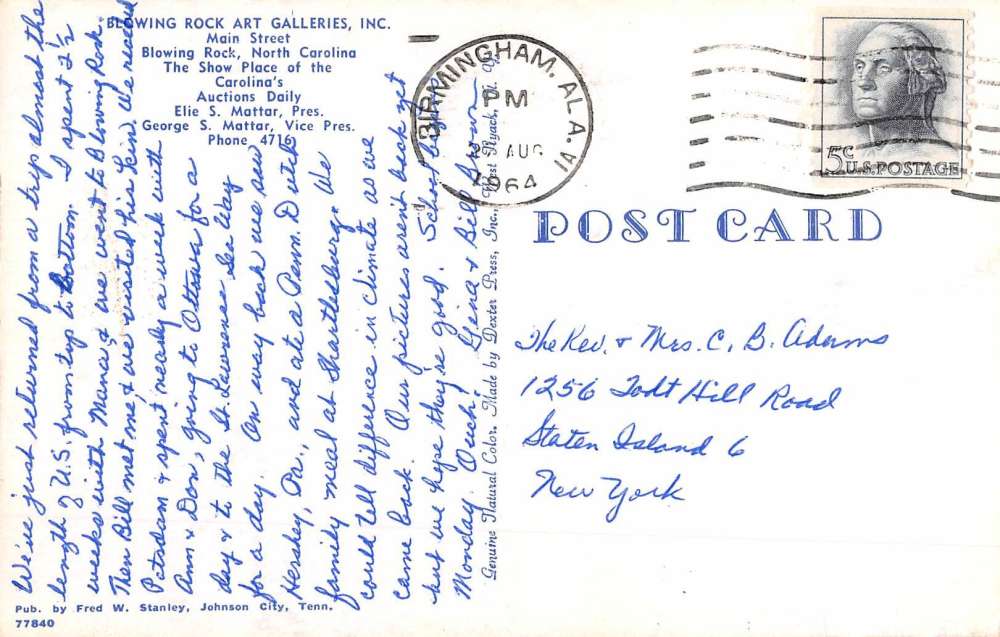 BLOWING ROCK ART GALLERIES, INC.
Main Street
Blowing Rock, North Carolina
The Show Place of the
Carolina's
Auctions Daily
Elie S. Mattar, Pres.
George S. Mattar, Vice Pres.
Phone 4716
We've just returned from a trip almost the
length of U.S. from top to bottom. I spent 2½
weeks with Mama & we went to Blowing Rock.
Then Bill met me & we visited his kin. We
Potsdam & spent nearly a week with
Ann & Don, going to Ottawa for a
day & to the St Lawrence Sea Way
for a day. On way back we saw
Hershey, Pa., and ate a Penn. Dutch
family meal at Shartlesburg. We
could tell difference in climate as we
came back. Our pictures aren't back yet
but we hope they're good. School begins
Monday. Ouch! Gena & Bill Brown
Pub. by Fred W. Stanley, Johnson City, Tenn.
77840
Genuine Natural Color. Made by Dexter Press, Inc., West Nyack, N. Y.
BIRMINGHAM, ALA.
PM
AUG
1964
5¢
U.S. POSTAGE
POST CARD
The Rev. & Mrs. C. B. Adams
1256 Todt Hill Road
Staten Island 6
New York